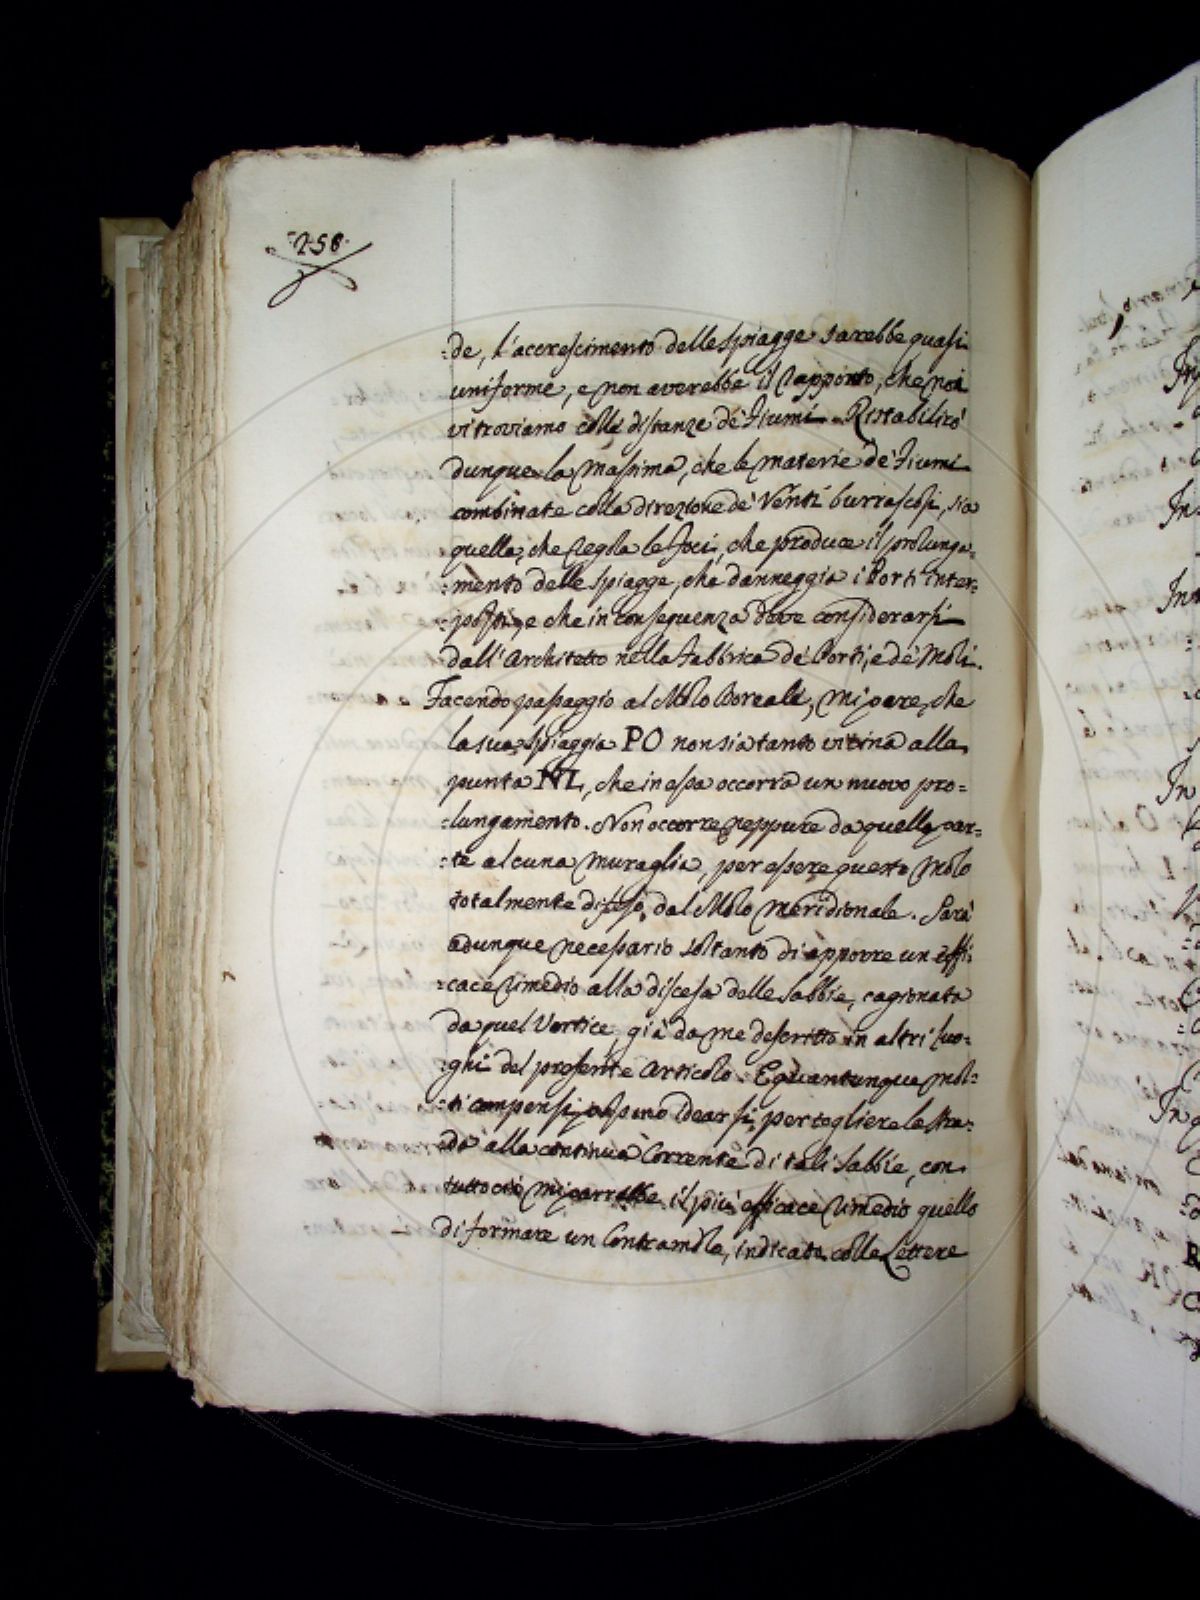 258
:de, l'accrescimento delle spiagge sarebbe quasi
uniforme, e non averebbe il rapporto, che noi
vi troviamo colle distanze de' Fiumi. Ristabiliró
dunque la massima, che le materie de' Fiumi
combinate colla direzione de' Venti burrascosi, sia
quella, che regola le foci, che produce il prolunga=
:mento delle spiagge, che danneggia i Porti inter=
:posti, e che in conseguenza deve considerarsi
dall'Architetto nella Fabbrica de' Porti, e de' Moli.
Facendo passaggio al Molo Boreale, mi pare, che
la sua spiaggia PO non sia tanto vicina alla
punta NL, che in essa occorra un nuovo pro=
:lungamento. Non occorre neppure da quella par=
:te alcuna muraglia, per essere questo Molo
totalmente difeso dal Molo meridionale. Sarà
adunque necessario soltanto di apporre un effi=
:cace rimedio alla discesa delle sabbie, cagionata
da quel Vortice, già da me descritto in altri luo=
:ghi del presente Articolo. E quantunque mol=
:ti compensi possino idearsi, per togliere la stra=
:da alla continua Corrente di tali sabbie, con
tuttociò mi parrebbe il più efficace rimedio quello
di formare un Contramole, indicato colle Lettere